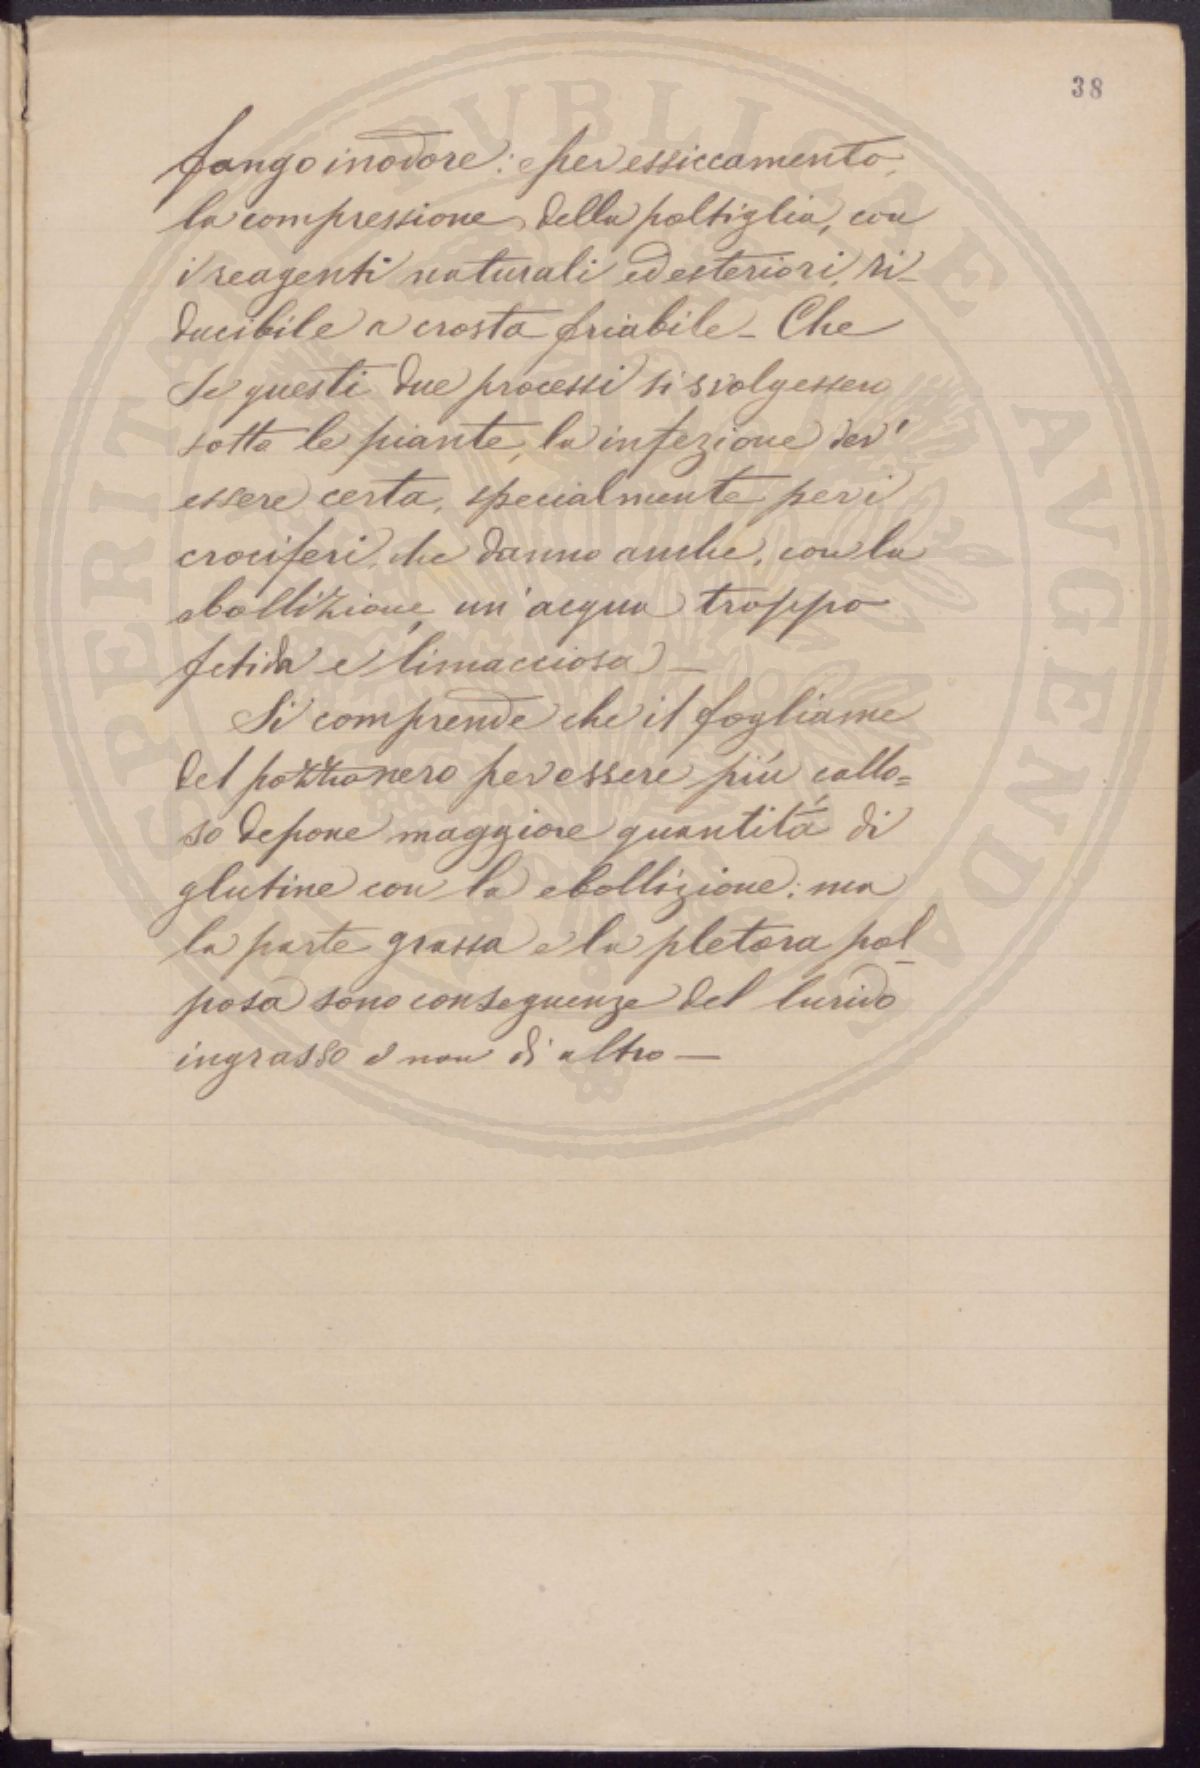 38
fango inodore: e per essiccamento,
la compressione della poltiglia, con
i reagenti naturali ed esteriori, ri-
ducibile a crosta friabile - Che
se questi due processi si svolgessero
sotto le piante, la infezione dev'
essere certa, specialmente per i
crociferi, che danno anche, con la
ebollizione, un'acqua troppo
fetida e limacciosa -
Si comprende che il fogliame
del pozzonero per essere più collo=
so depone maggiore quantità di
glutine con la ebollizione: ma
la parte grassa e la pletora pol-
posa sono conseguenze del lurido
ingrasso e non di altro -
PROSPERITATI PUBLICAE AVGENDAE